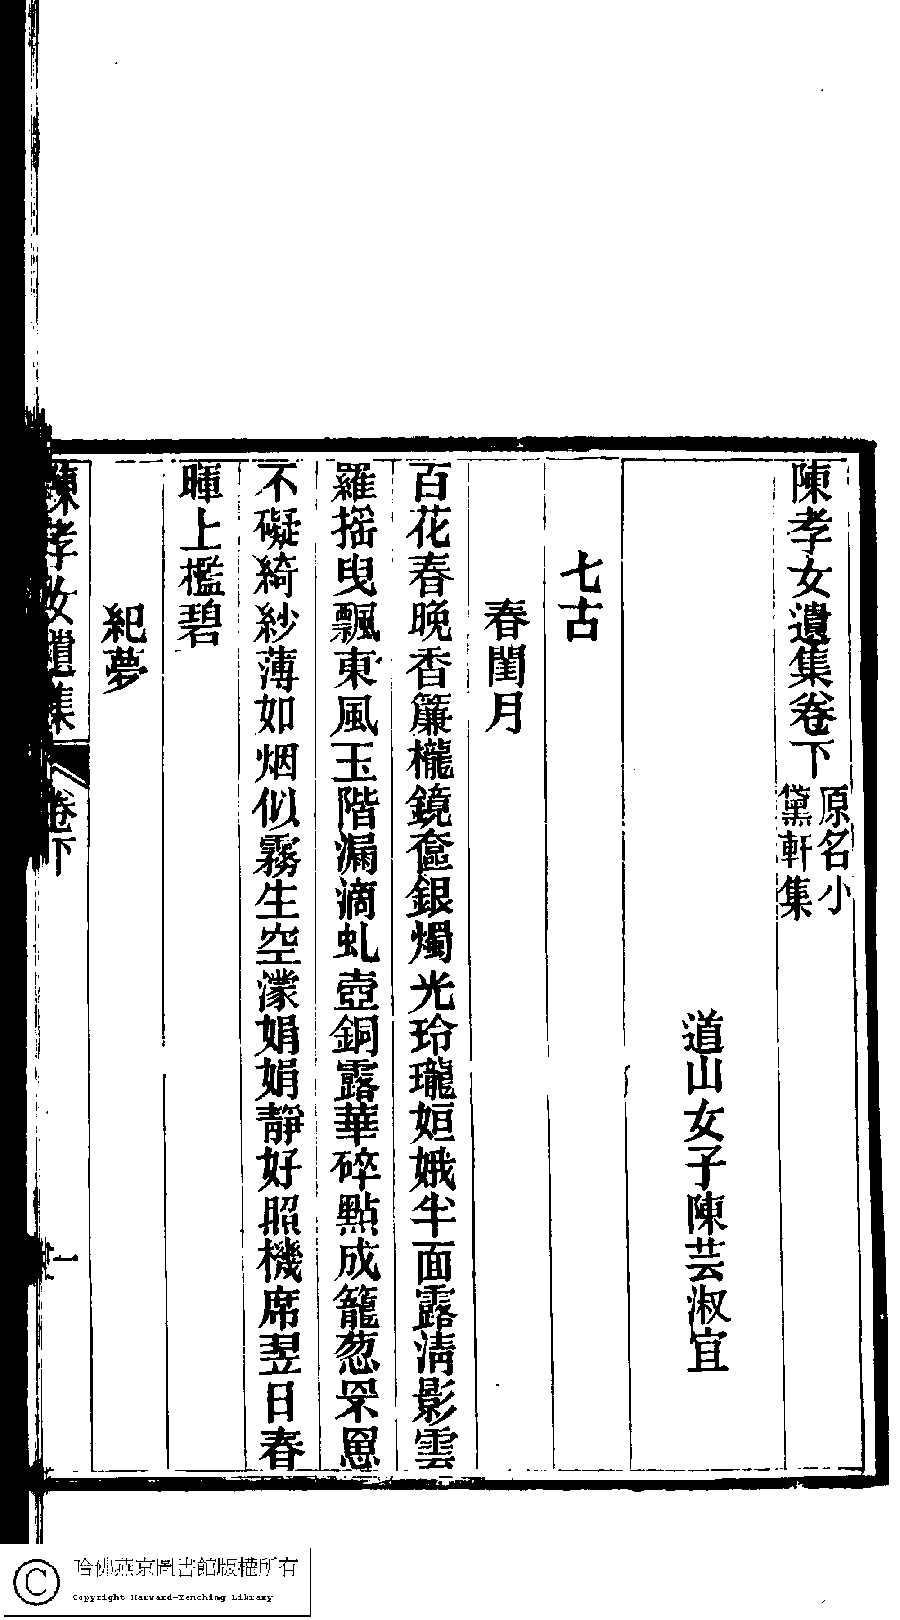 陳孝女遺集卷下 原名小黛軒集
道山女子陳芸淑宜
七古
春閨月
百花春晚香簾櫳鏡奩銀燭光玲瓏姮娥半面露清影雲
羅搖曳飄東風玉階漏滴虬壺銅露華碎點成籠葱罘罳
不礙綺紗薄如烟似霧生空濛娟娟靜好照機席翌日春
暉上檻碧
紀夢
陳孝女遺集 卷下 一
哈佛燕京圖書館版權所有
Copyright Harvard-Yenching Library